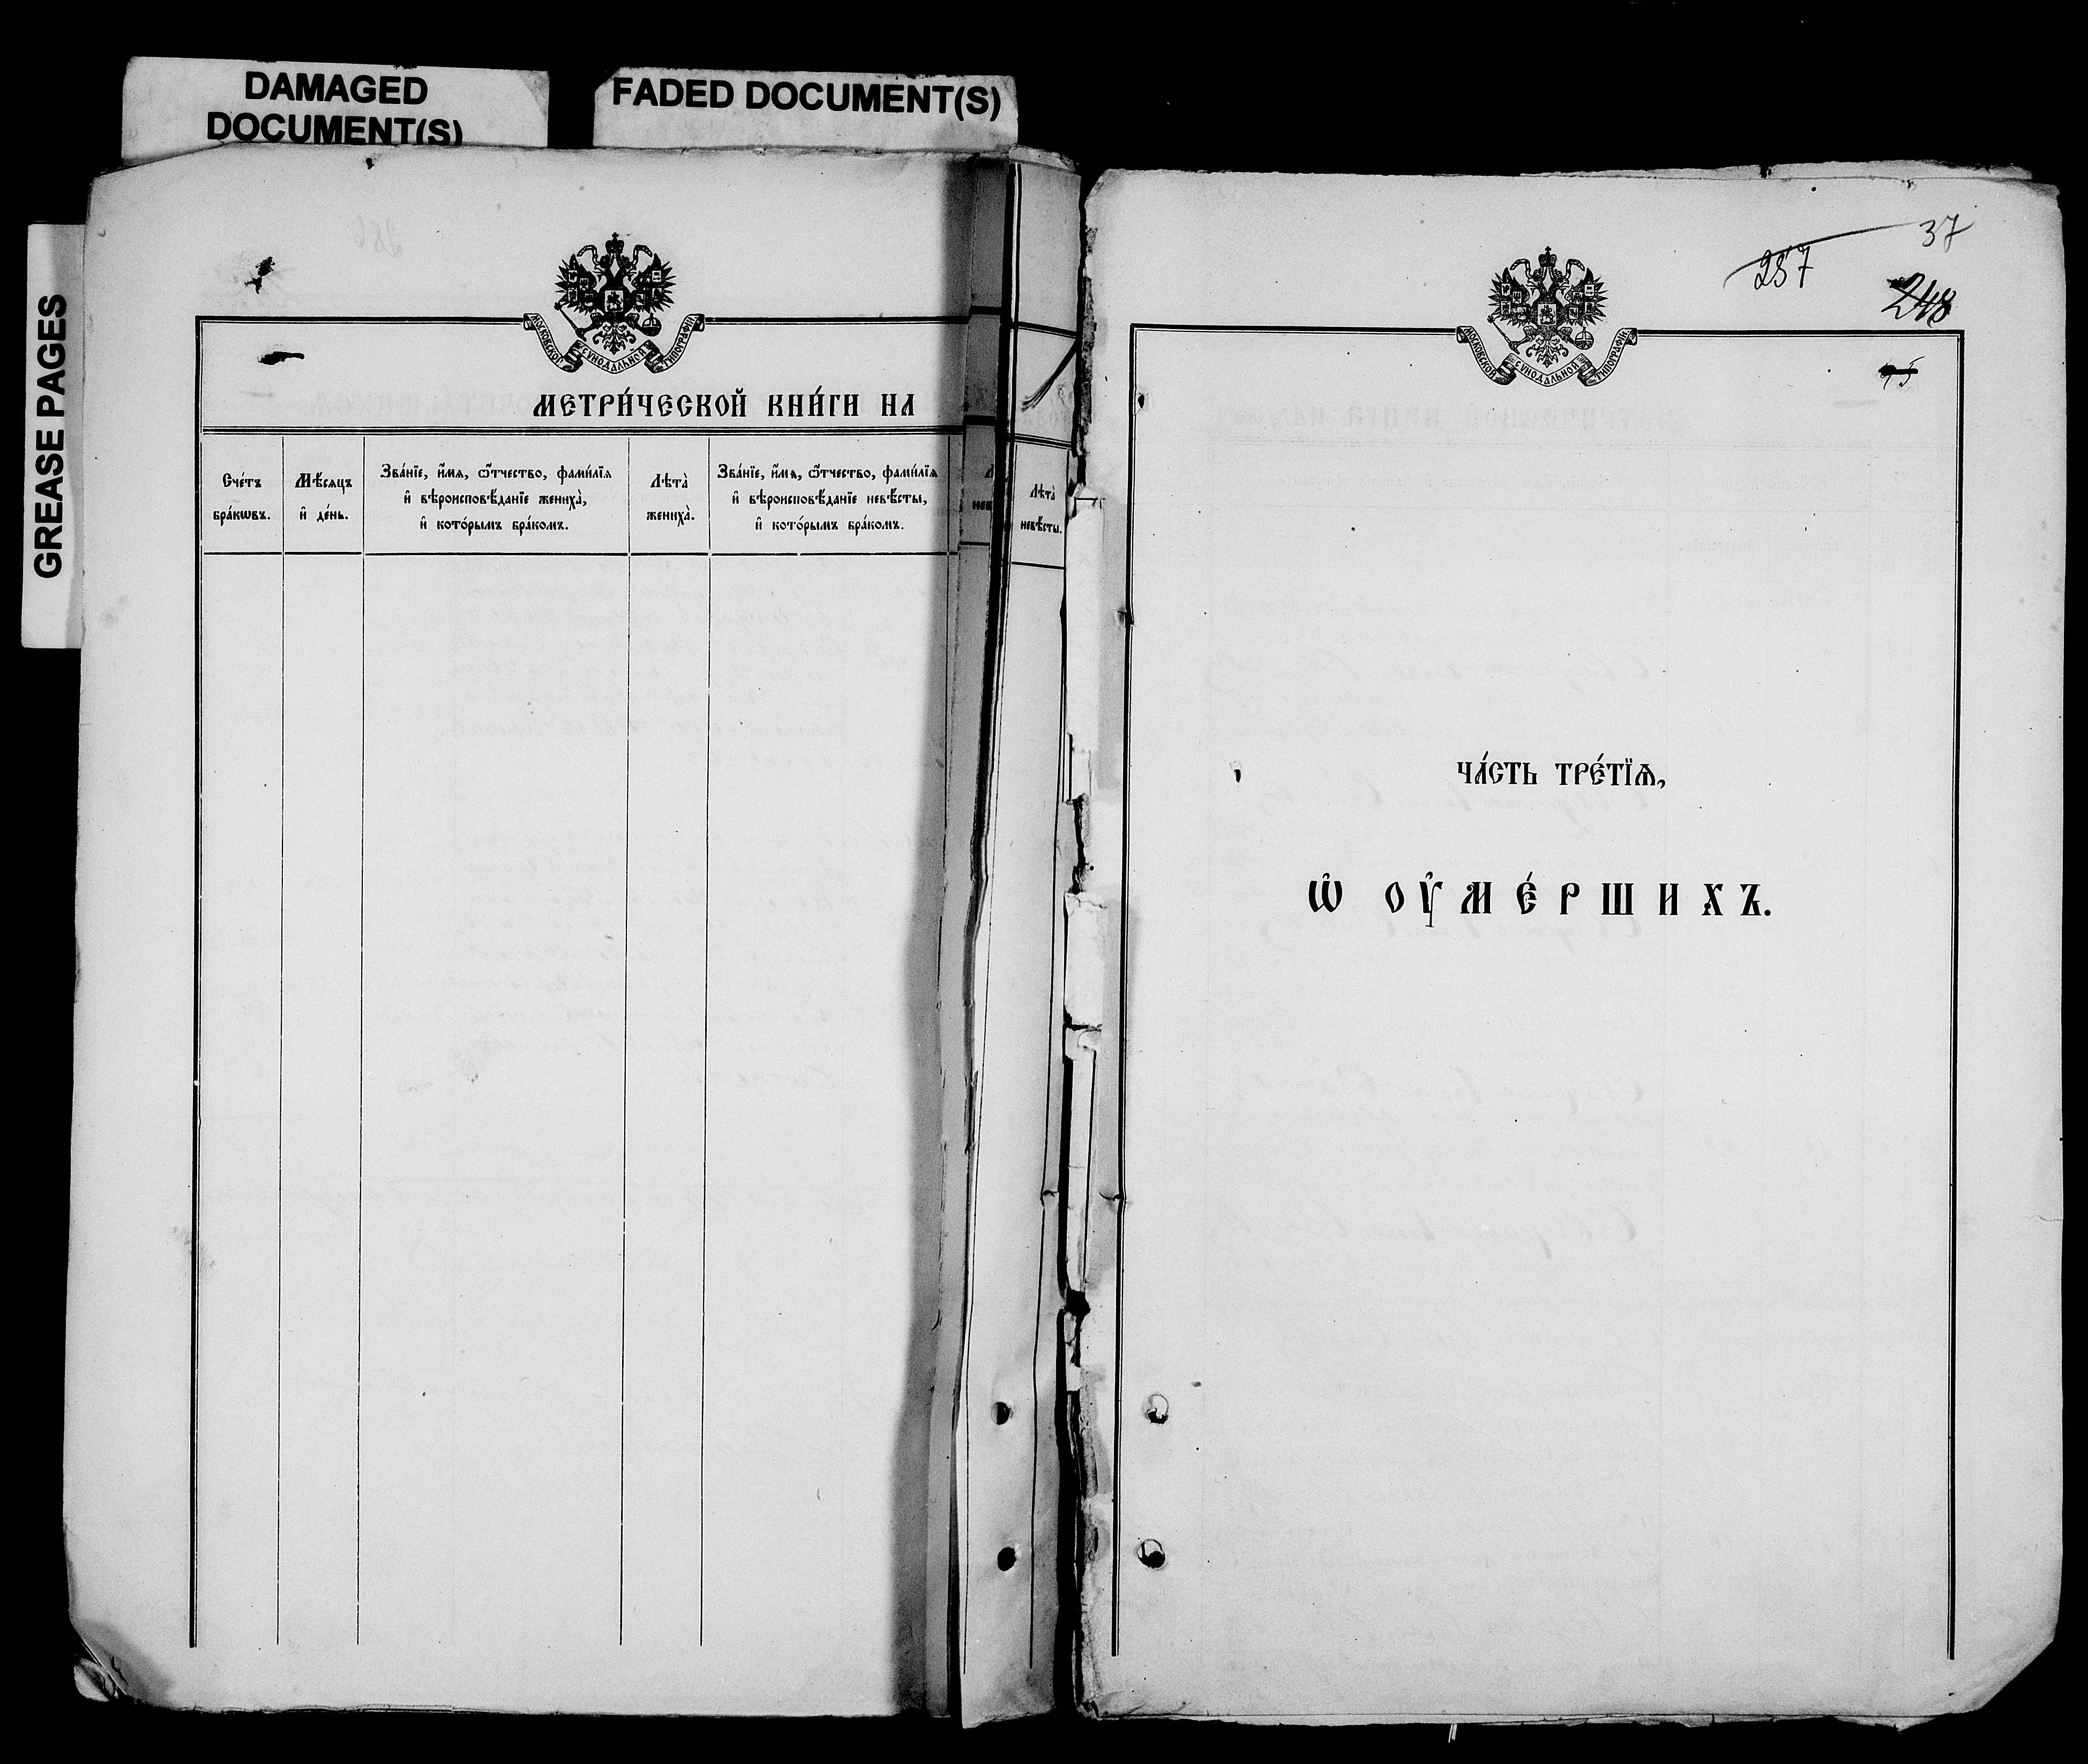 DAMAGED
DOCUMENT(S)
FADED DOCUMENT(S)
GREASE PAGES
МОСКОВСКОЙ СУНОДАЛЬНОЙ ТИПОГРАФІИ.
МЕТРИ́ЧЕСКОЙ КНИ́ГИ НА
Сче́тъ
бра́кѡвъ.
Мѣ́сѧцъ
и҆ де́нь.
Зва́нїе, и҆́мѧ, ѻ҆́тчество, фами́лїѧ
и҆ вѣроисповѣ́данїе жениха̀,
и҆ кото́рымъ бра́комъ.
Лѣта̀
жениха̀.
Зва́нїе, и҆́мѧ, ѻ҆́тчество, фами́лїѧ
и҆ вѣроисповѣ́данїе невѣ́сты,
и҆ кото́рымъ бра́комъ.
Лѣта̀
невѣ́сты.
37
257
248
МОСКОВСКОЙ СУНОДАЛЬНОЙ ТИПОГРАФІИ.
ЧА́СТЬ ТРЕ́ТЇѦ,
Ѡ҆ ОУ҆МЕ́РШИХЪ.